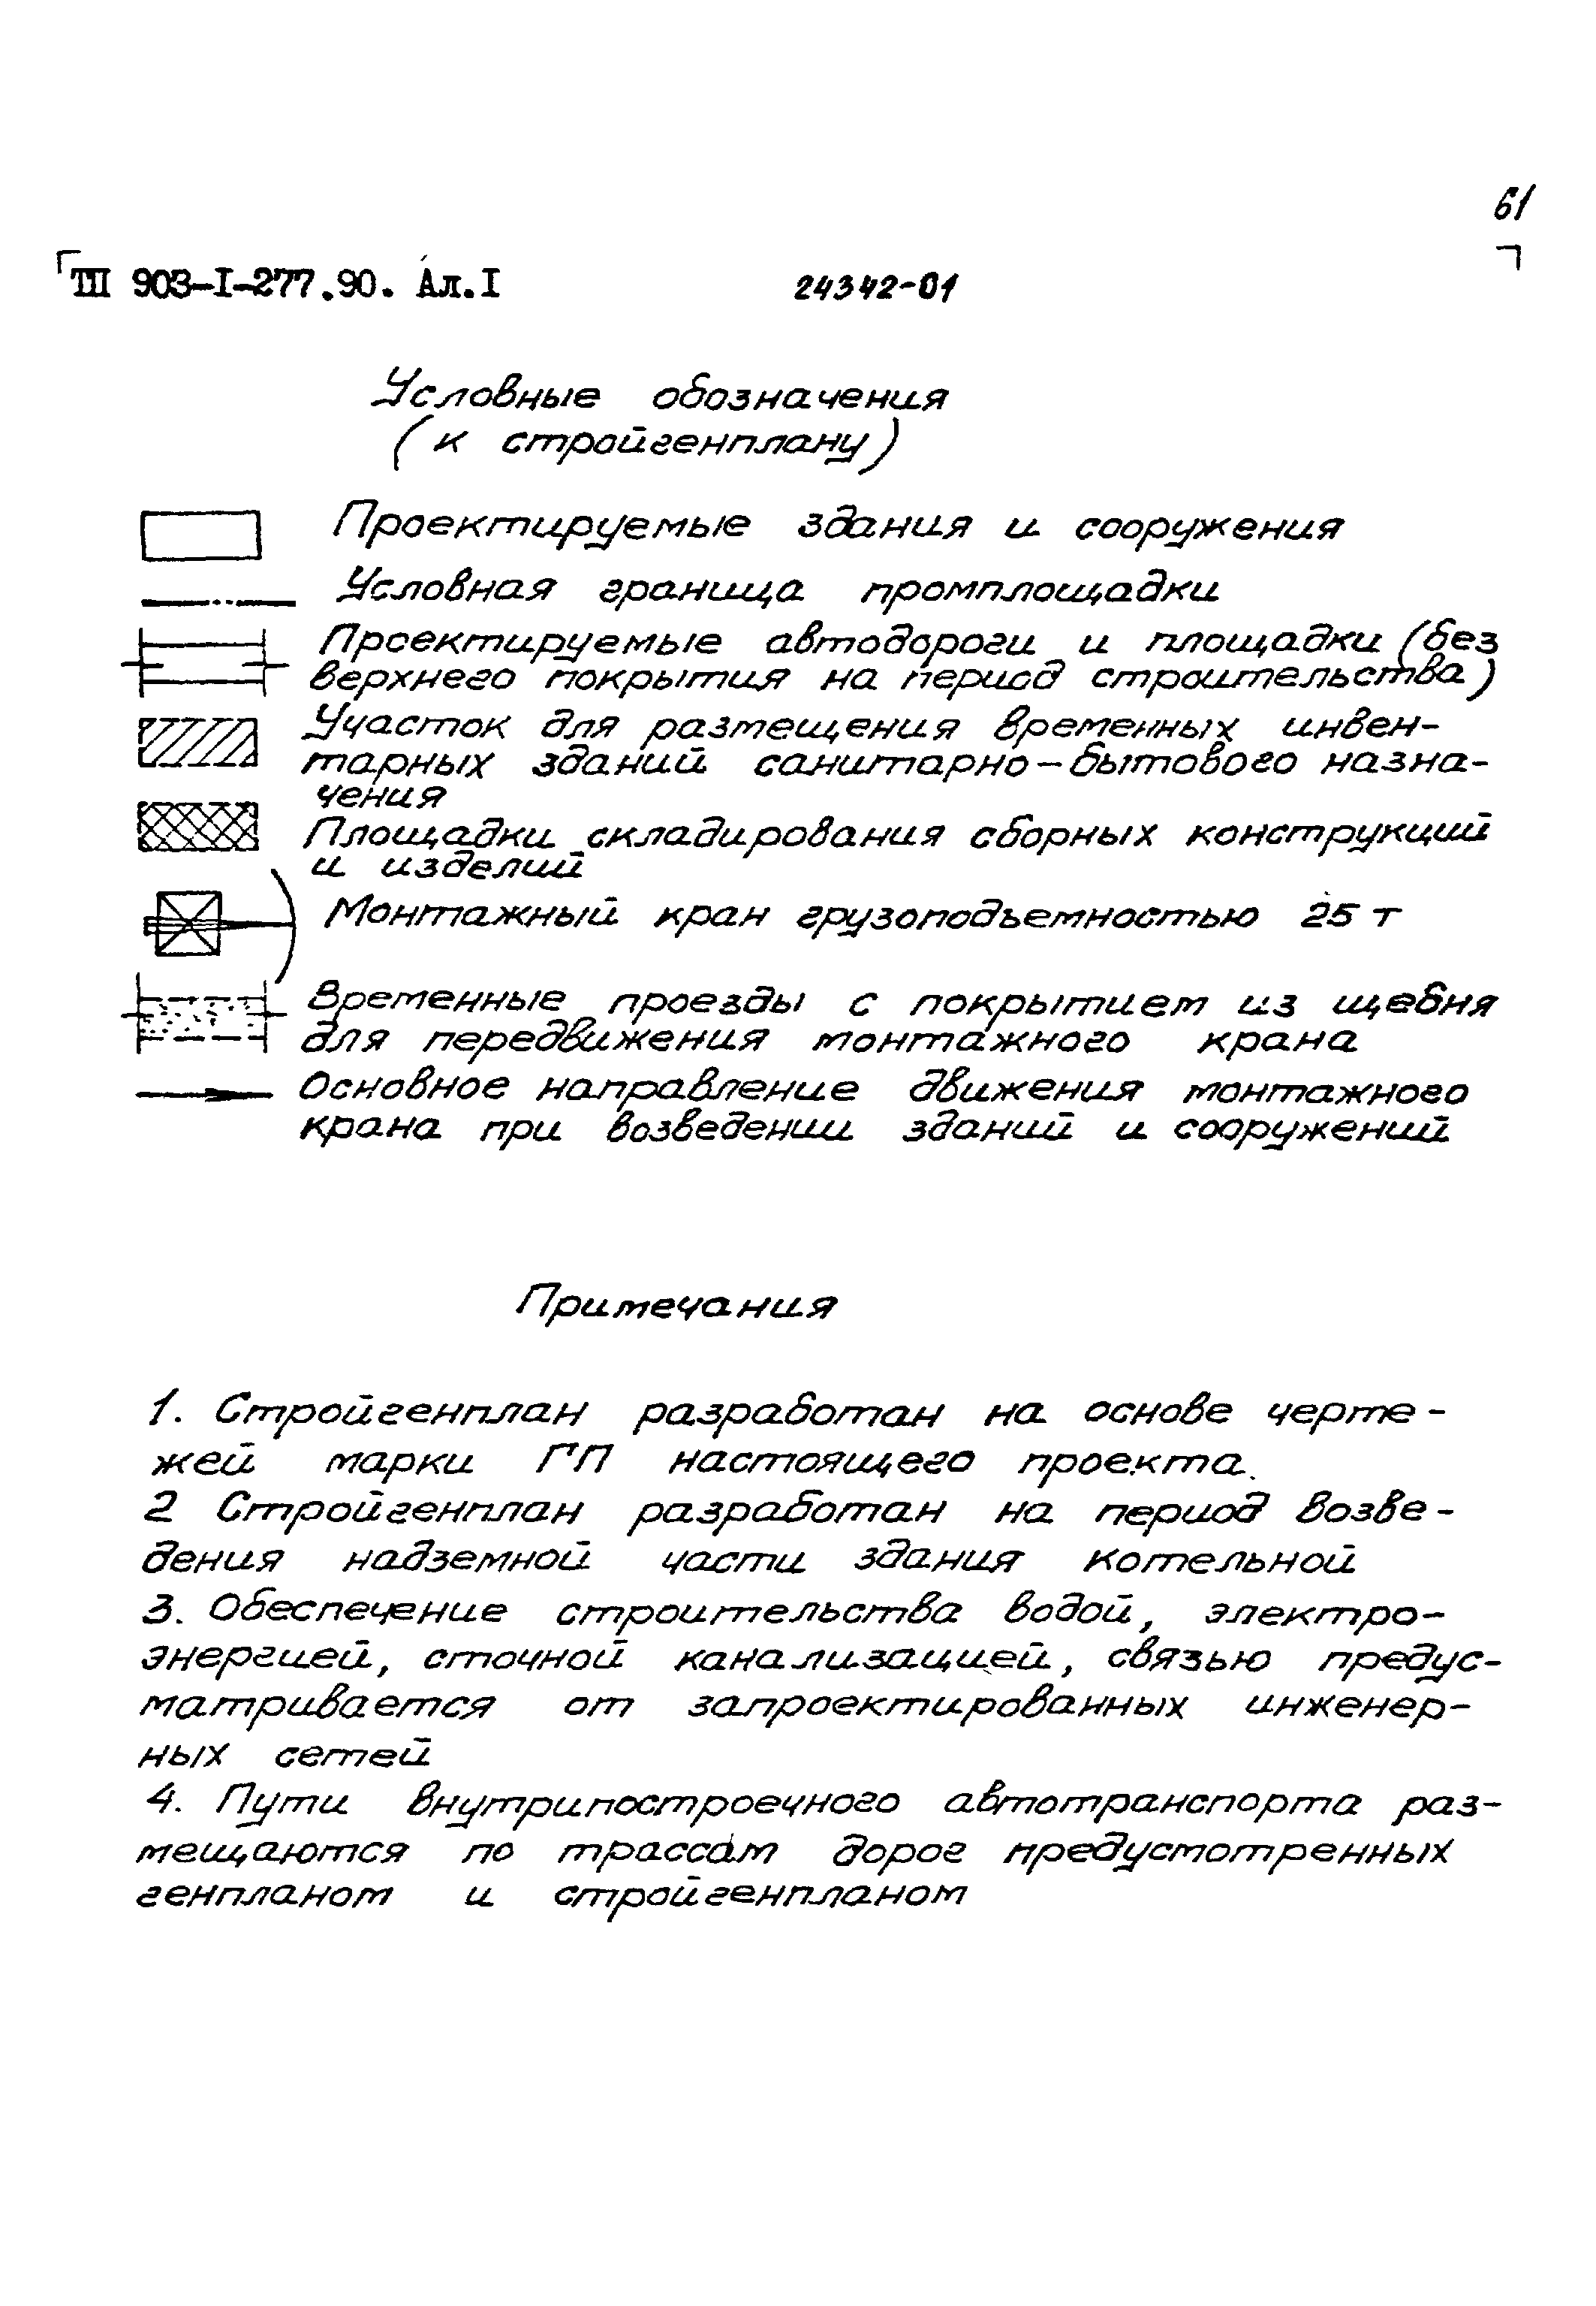 61
ТП 903-I-277.90. Ал.I 24342-01
Условные обозначения
(к стройгенплану)
Проектируемые здания и сооружения
Условная граница промплощадки
Проектируемые автодороги и площадки (без
верхнего покрытия на период строительства)
Участок для размещения временных инвен-
тарных зданий санитарно-бытового назна-
чения
Площадки складирования сборных конструкций
и изделий
Монтажный кран грузоподъемностью 25 т
Временные проезды с покрытием из щебня
для передвижения монтажного крана
Основное направление движения монтажного
крана при возведении зданий и сооружений
Примечания
1. Стройгенплан разработан на основе черте-
жей марки ГП настоящего проекта.
2 Стройгенплан разработан на период возве-
дения надземной части здания котельной
3. Обеспечение строительства водой, электро-
энергией, сточной канализацией, связью предус-
матривается от запроектированных инженер-
ных сетей
4. Пути внутрипостроечного автотранспорта раз-
мещаются по трассам дорог предусмотренных
генпланом и стройгенпланом